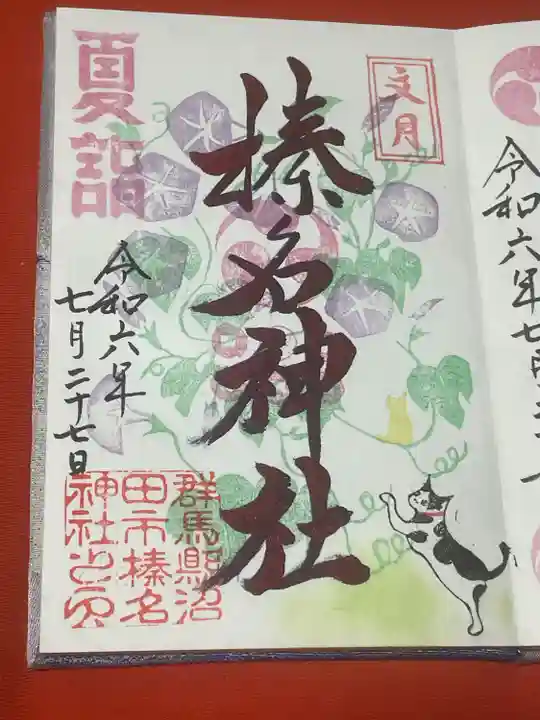 夏詣
文月
榛名神社
令和六年
七月二十七日
群馬縣沼
田市榛名
神社之印
令和六年七月二